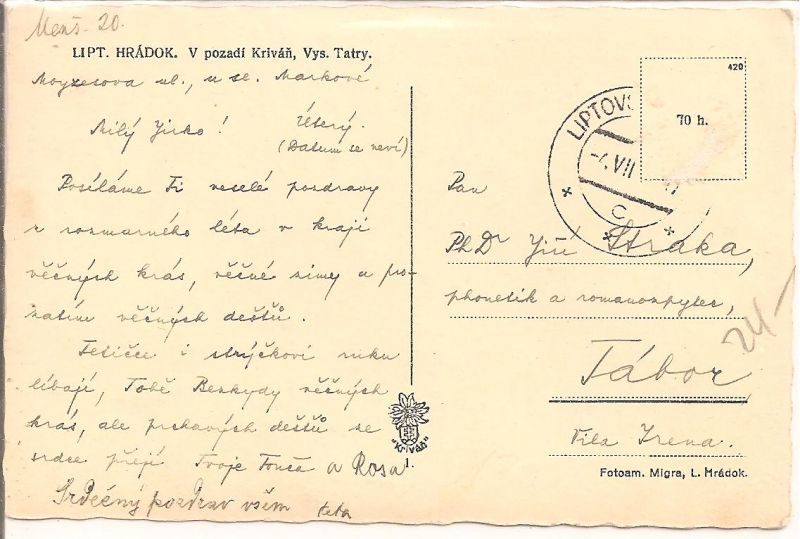 Menš. 20.
LIPT. HRÁDOK. V pozadí Kriváň, Vys. Tatry.
Moyzesova ul., u sl. Markové
Milý Jirko! Úterý.
(Datum se neví)
Posíláme Ti veselé pozdravy
z rozmarného léta v kraji
věčných krás, věčné zimy a pro-
zatím věčných dešťů.
Tetičce i strýčkovi ruku
líbají, Tobě Bezkydy věčných
krás, ale prchavých dešťů se
srdce přejí Tvoje Tonča a Rosa
Srdečný pozdrav všem teta
"Kriváň"
1.
420
70 h.
LIPTOV
-4.VII
C
Pan
PhDr Jiří Straka,
phonetik a romanozpytec,
Tábor
Vila Irena.
24-
Fotoam. Migra, L. Hrádok.